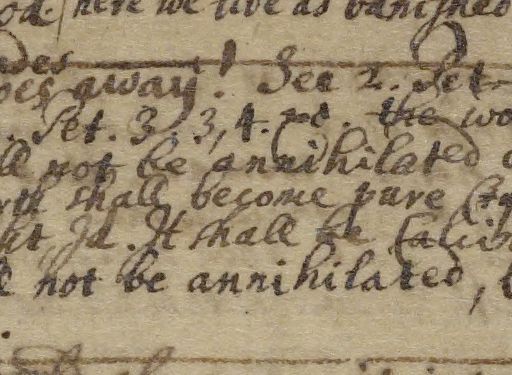 od. here we live as banished
ades
oes away! See 2. Pet
. Pet. 3. 3, 4. the wo
ll not be annihilated
rth shall become pure
ht Id. It shall be
ll not be annihilated,